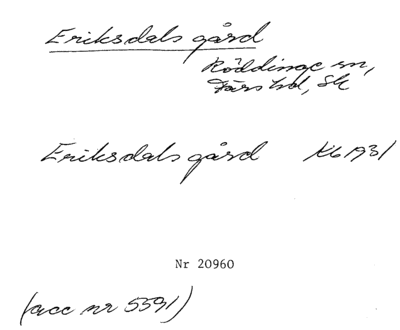 Eriksdals gård
Röddinge sn,
Färs hd, Sk
Eriksdals gård Kb 1931
Nr 20960
(acc nr 5591)